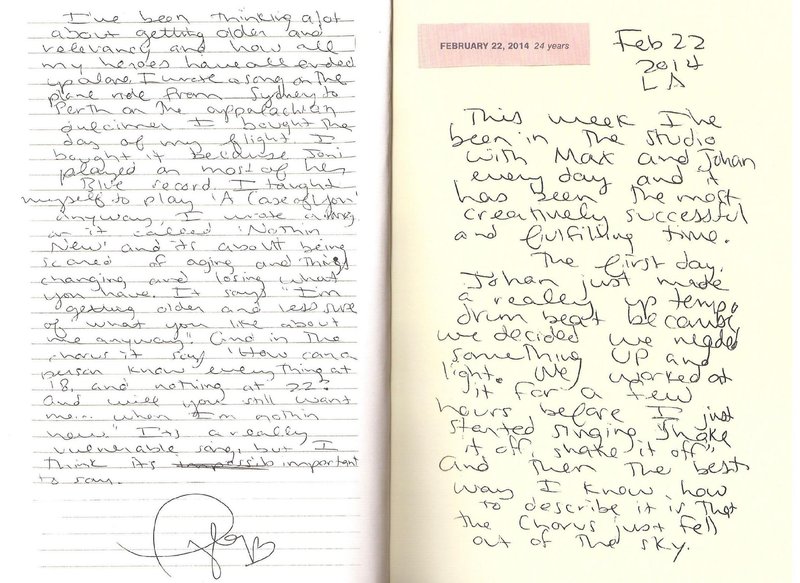 I've been thinking alot
about getting older and
relevancy and how all
my heroes have all ended
up alone. I wrote a song on the
plane ride from Sydney to
Perth on the appalachian
dulcimer I bought the
day of my flight. I
bought it because Joni
played on most of her
Blue record. I taught
myself to play 'A Case of You'
anyway, I wrote a song
on it called 'Nothin
New' and its about being
scared of aging and things
changing and losing what
you have. It says "I'm
getting older and less sure
of what you like about
me anyway". And in the
chorus it say 'How can a
person know everything at
18, and nothing at 22?
And will you still want
me... when I'm nothin
new." Its a really
vulnerable song, but I
think its important
to say.
FEBRUARY 22, 2014 24 years
Feb 22
2014
LA
This week I've
been in the studio
with Max and Johan
every day and it
has been the most
creatively successful
and fulfilling time.
The first day,
Johan just made
a really up tempo
drum beat because
we decided we needed
something UP and
light. We worked at
it for a few
hours before I just
started singing "shake
it off, shake it off"
And then the best
way I know how
to describe it is that
the chorus just fell
out of the sky.